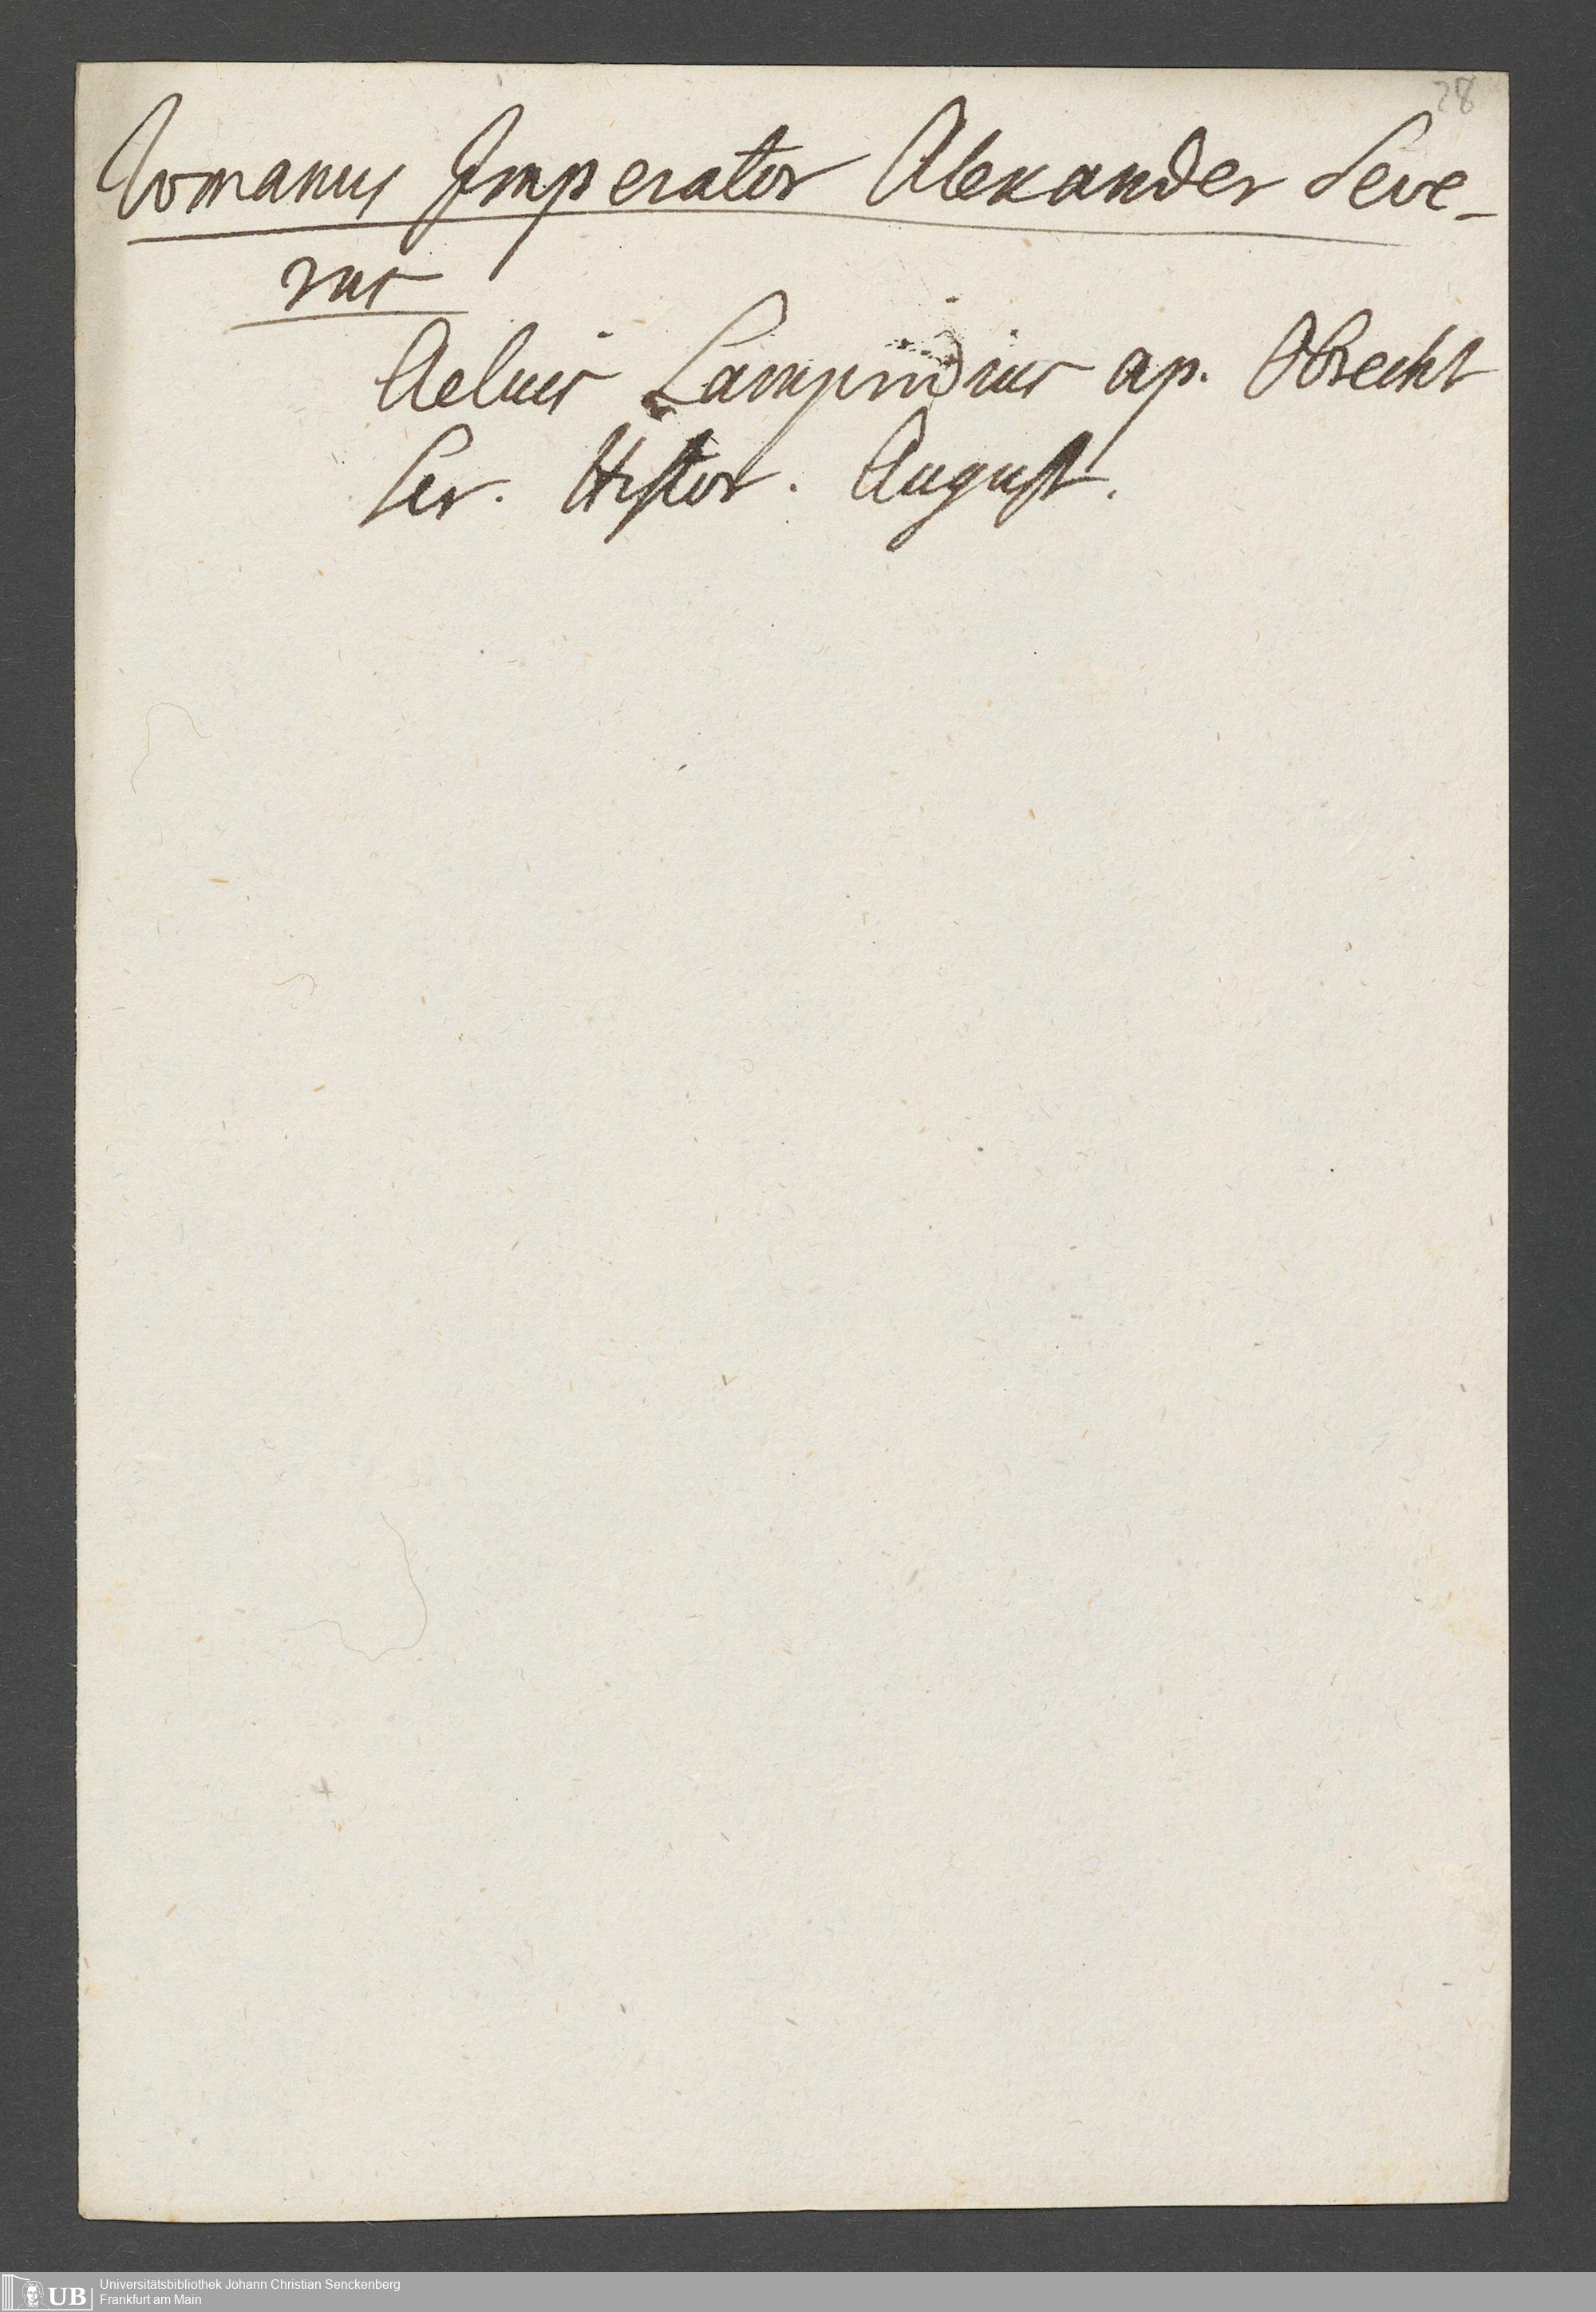 28
Romanus Imperator Alexander Seve-
rus
Aelius Lampridius ap. Obrecht
Scr. Histor. August.
Universitätsbibliothek Johann Christian Senckenberg
UB Frankfurt am Main